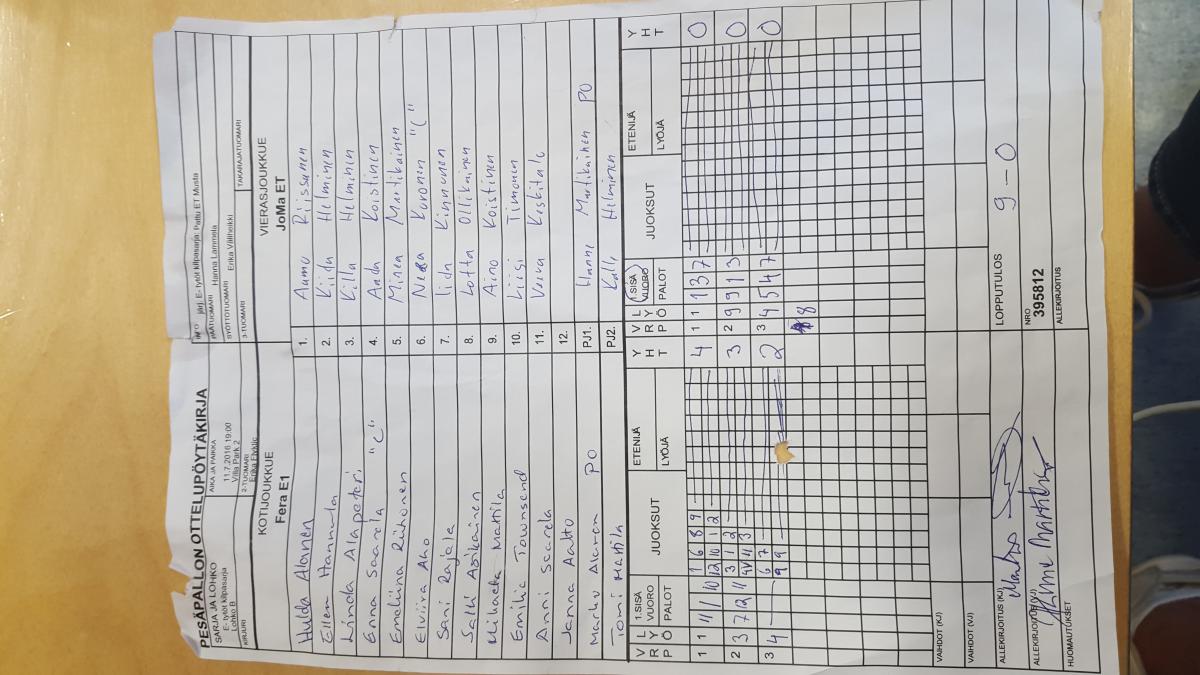 PESÄPALLON OTTELUPÖYTÄKIRJA
SARJA JA LOHKO
E- tytöt kilpasarja
Lohko B
AIKA JA PAIKKA
11.7.2016 19:00
Villa Park 2
NRO
järj. E- tytöt kilpasarja: Pattu ET Musta
PÄÄTUOMARI Hanna Lammela
SYÖTTÖTUOMARI Erika Väliheikki
KIRJURI
2-TUOMARI
3-TUOMARI
TAKARAJATUOMARI
KOTIJOUKKUE
Fera E1
VIERASJOUKKUE
JoMa ET
Hulda Alanen 1. Aamu Riissanen
Ellen Hannula 2. Kiida Helminen
Linda Alapeteri 3. Killa Helminen
Enna Saarela "C" 4. Anda Koistinen
Emeliina Riihonen 5. Minea Martikainen
Elviira Aho 6. Neea Kuronen "C"
Sani Rajala 7. Iida Kinnunen
Salli Asikainen 8. Lotta Ollikainen
Mikaela Mattila 9. Aino Koistinen
Emilia Townsend 10. Liisi Timonen
Anni Saarela 11. Veera Keskitalo
Janna Aalto 12.
Marko Alanen PO PJ1. Hanne Martikainen PO
Tomi Mattila PJ2. Kalle Helminen
V R P L Y Ö 1.SISÄ VUORO PALOT JUOKSUT ETENIJÄ LYÖJÄ Y H T V R P L Y Ö 1.SISÄ VUORO PALOT JUOKSUT ETENIJÄ LYÖJÄ Y H T
1 1 11 11 10 1 6 8 9 4 1 1 1 3 7 0
12 10 1 2
2 3 7 12 11 3 1 2 3 2 9 9 1 3 0
11 3
3 4 6 7 2 3 4 5 4 7 0
9 9
8
VAIHDOT (KJ)
VAIHDOT (VJ)
ALLEKIRJOITUS (KJ)
LOPPUTULOS 9 – 0
ALLEKIRJOITUS (VJ) Hanne Martikainen
NRO
395812
HUOMAUTUKSET
ALLEKIRJOITUS